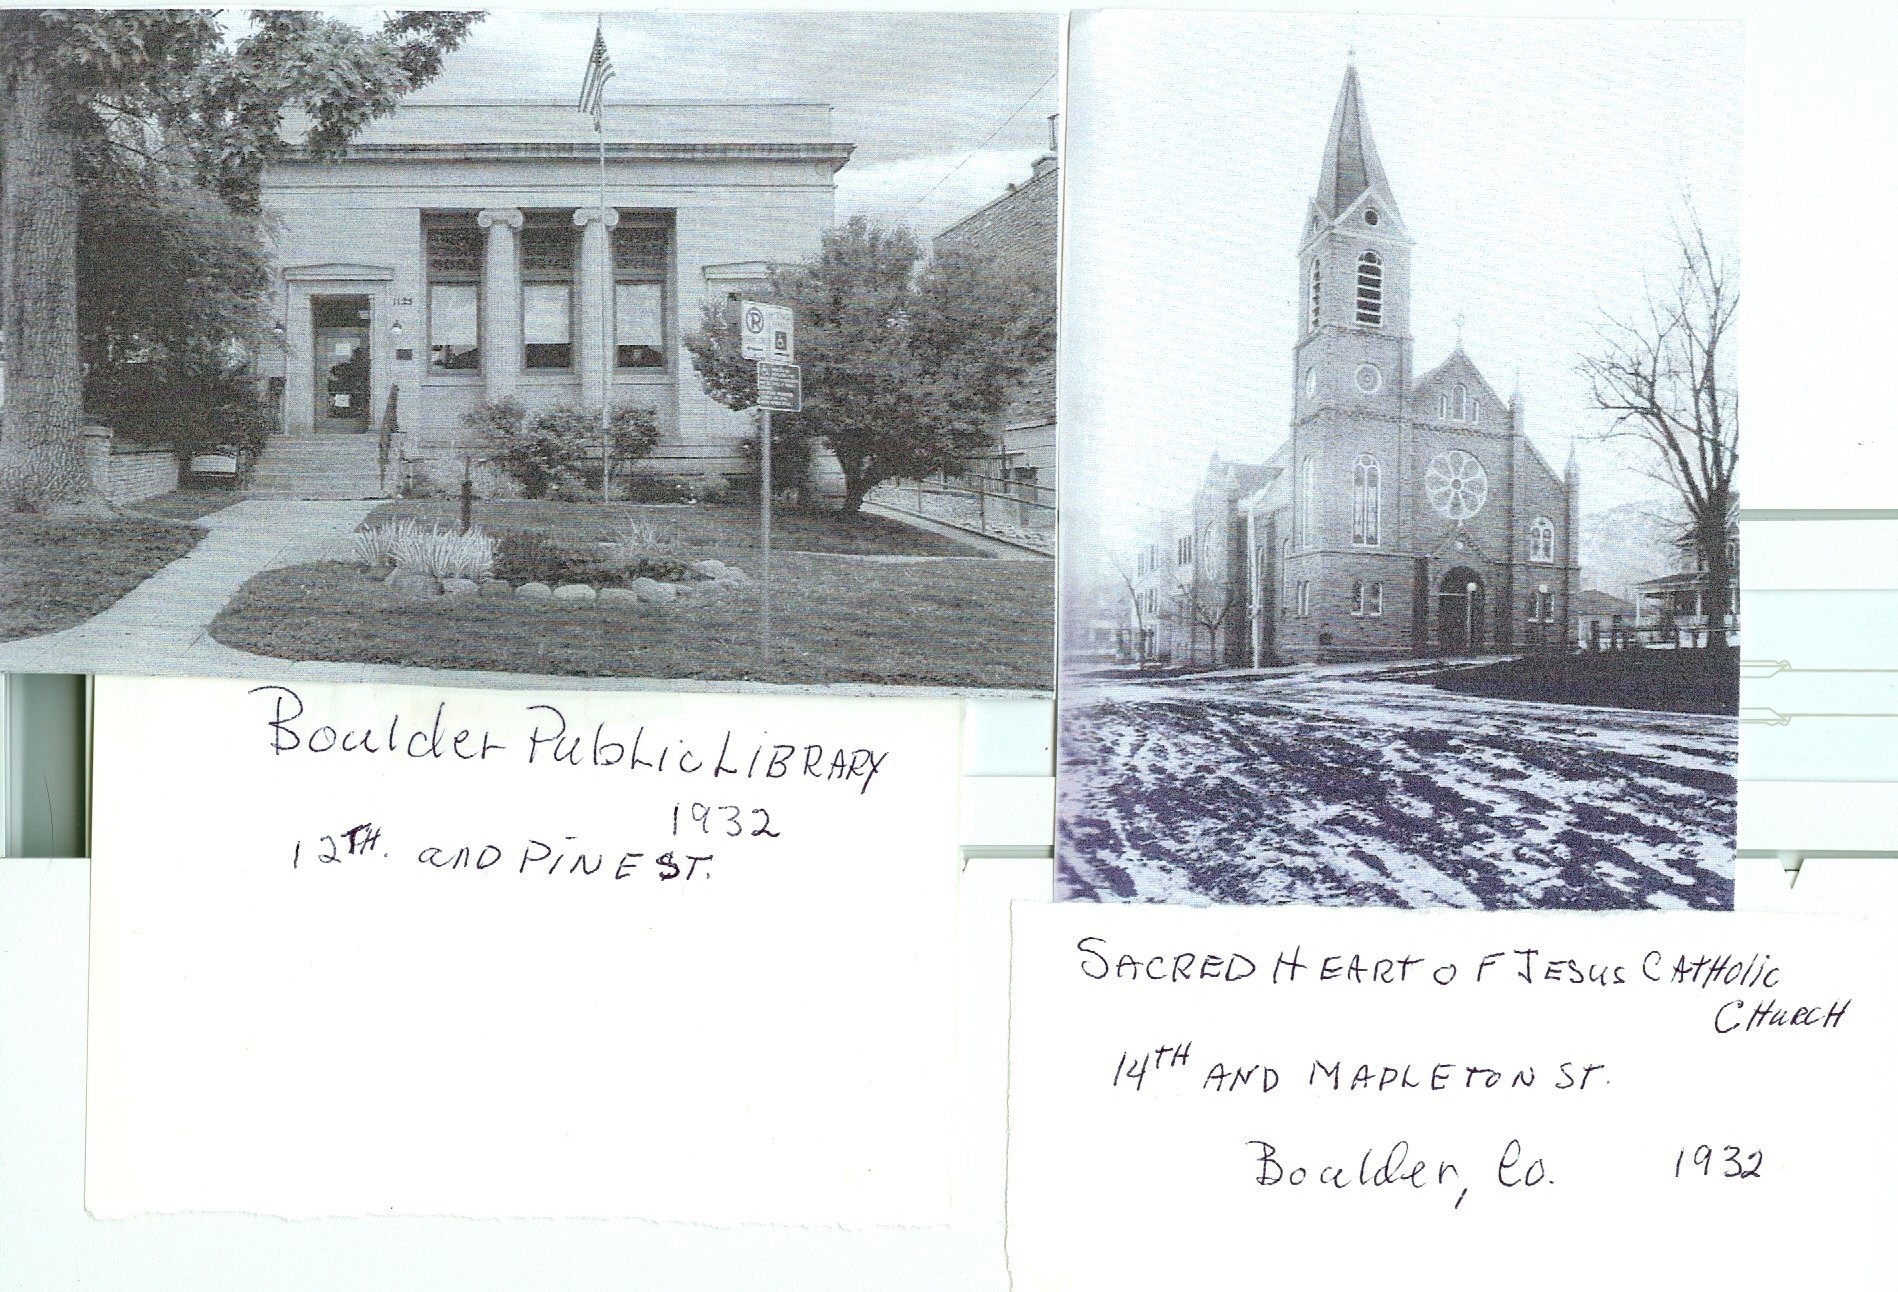 1125
P
Boulder Public LiBRARY
1932
12TH. and PINE ST.
SACRED HEART OF JESUS CATHOLIC
CHURCH
14TH AND MAPLETON ST.
Boulder, Co. 1932